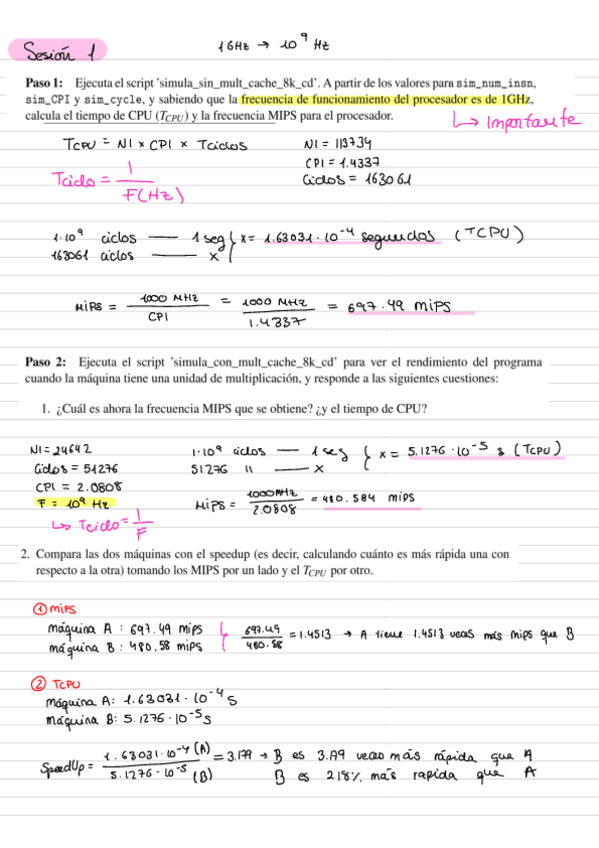 Sesión 1
1GHz → 10⁹ Hz
Paso 1: Ejecuta el script 'simula_sin_mult_cache_8k_cd'. A partir de los valores para sim_num_insn,
sim_CPI y sim_cycle, y sabiendo que la frecuencia de funcionamiento del procesador es de 1GHz,
calcula el tiempo de CPU (T_CPU) y la frecuencia MIPS para el procesador.
↳ Importante
TCPU = NI × CPI × Tciclos
NI = 113734
Tciclo = 1 / F(Hz)
CPI = 1.4337
Ciclos = 163061
1·10⁹ ciclos — 1 seg } x = 1.63031·10⁻⁴ segundos (TCPU)
163061 ciclos — x
MIPS = 1000 MHz / CPI = 1000 MHz / 1.4337 = 697.49 MIPS
Paso 2: Ejecuta el script 'simula_con_mult_cache_8k_cd' para ver el rendimiento del programa
cuando la máquina tiene una unidad de multiplicación, y responde a las siguientes cuestiones:
1. ¿Cuál es ahora la frecuencia MIPS que se obtiene? ¿y el tiempo de CPU?
NI = 24642
1·10⁹ ciclos — 1 seg } x = 5.1276·10⁻⁵ s (TCPU)
Ciclos = 51276
51276 11 — x
CPI = 2.0808
F = 10⁹ Hz
MIPS = 1000MHz / 2.0808 = 480.584 MIPS
↳ Tciclo = 1/F
2. Compara las dos máquinas con el speedup (es decir, calculando cuánto es más rápida una con
respecto a la otra) tomando los MIPS por un lado y el T_CPU por otro.
① MIPS
máquina A : 697.49 mips } 697.49 / 480.58 = 1.4513 → A tiene 1.4513 veces más mips que B
máquina B : 480.58 mips
② TCPU
Máquina A: 1.63031·10⁻⁴ s
Máquina B: 5.1276·10⁻⁵ s
SpeedUp = 1.63031·10⁻⁴ (A) / 5.1276·10⁻⁵ (B) = 3.179 → B es 3.179 veces más rápida que A
B es 218% más rapida que A